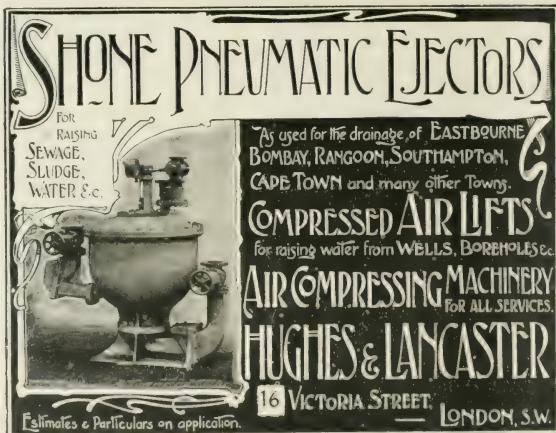 SHONE PNEUMATIC EJECTORS
FOR
RAISING
SEWAGE,
SLUDGE,
WATER &c.
As used for the drainage, of EASTBOURNE
BOMBAY, RANGOON, SOUTHAMPTON,
CAPE TOWN and many other Towns.
COMPRESSED AIR LIFTS
for raising water from WELLS, BOREHOLES &c.
AIR COMPRESSING MACHINERY
FOR ALL SERVICES.
HUGHES & LANCASTER
16 VICTORIA STREET,
LONDON, S.W.
Estimates & Particulars on application.